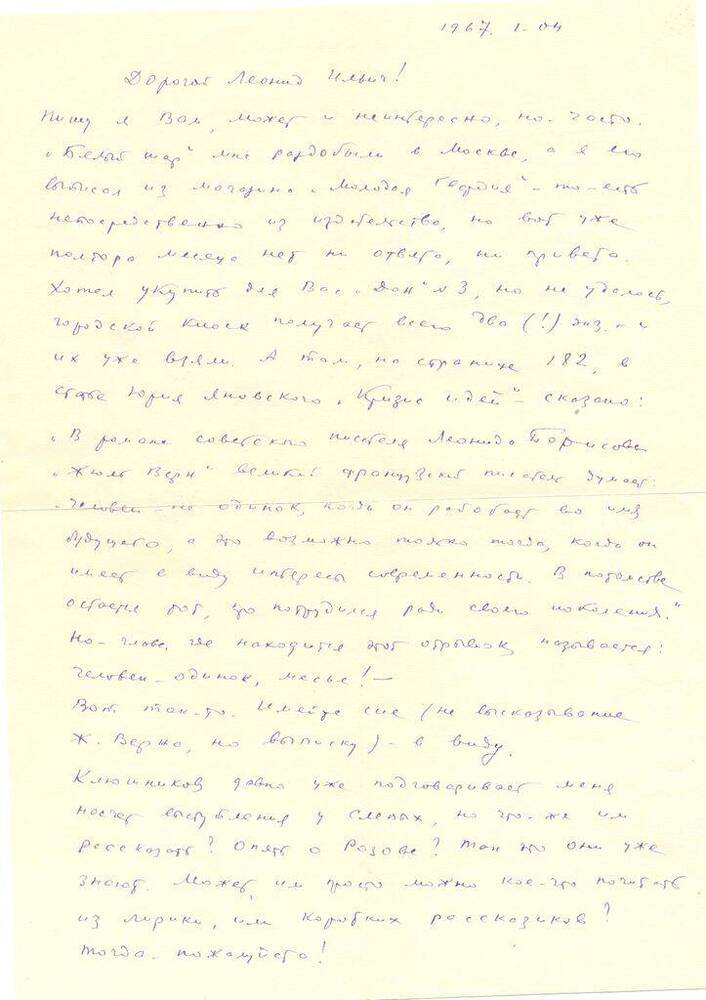 1967. I-04
Дорогой Леонид Ильич!
Пишу я Вам, может и неинтересно, но - часто.
„Белый шар" мне раздобыли в Москве, а я его
выписал из магазина „Молодая гвардия" - то-есть
непосредственно из издательства, но вот уже
полтора месяца нет ни ответа, ни привета.
Хотел укупить для Вас „Дон" №3, но не удалось,
городской киоск получает всего два (!) экз. - и
их уже взяли. А там, на странице 182, в
статье Юрия Яновского „Кризис идей" - сказано:
„В романе советского писателя Леонида Борисова
„Жюль Верн" великий французский писатель думает:
„Человек - не одинок, когда он работает во имя
будущего, а это возможно только тогда, когда он
имеет в виду интересы современности. В потомстве
остается тот, кто потрудился ради своего поколения."
Но - глава, где находится этот отрывок называется:
Человек - одинок, месье! -
Вот так-то. Имейте сие (не высказывание
Ж. Верна, но выписку) - в виду.
Клюшников давно уже подговаривает меня
насчет выступления у слепых, но что-же им
рассказать? Опять о Розове? Так это они уже
знают. Может, им просто можно кое-что почитать
из лирики, или коротких рассказиков?
Тогда - пожалуйста!